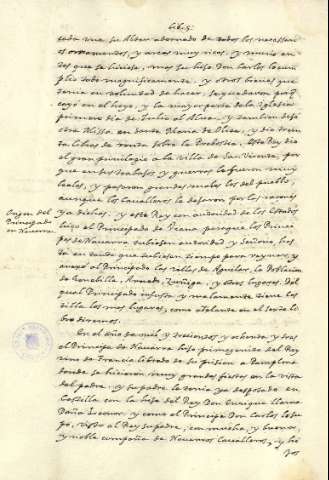 Lib. 5
cada una, su Altar adornado de todos los necessari
os ornamentos, y arcas muy ricas, y murio an
tes que se hiciese, mas su hijo Don Carlos lo cum
plio todo magnificamente, y otros bienes que
tenia en voluntad de hacer, se quedaron por
cayó en el hoyo, y la mayor parte de la Iglesia
primero dia de Julio al Alva, y tambien dejó
otra Missa en Santa Maria de Olite, y dio trein
ta libras de renta sobre la Prebostia. Este Rey dio
el gran privilegio a la villa de San Vicente, por
que en sus trabajos y guerras le fueron muy
leales, y passaron grandes males los del pueblo,
aunque los Cavalleros le dejaron por las razones
ya dichas, y este Rey con autoridad de los Estados
hizo el Principado de Viana, porque los Princi
pes de Navarra tubiesen autoridad y Señorio, has
ta en tanto que tubiesen tiempo para reynar, y
anexó al Principado los valles de Aguilar, la Poblacion
de Genebilla, y otros lugares, del
qual Principado injusta y malamente tiene Cas
tilla los mas lugares, como adelante en el sexto li
bro diremos.
Origen del
Principado
en Navarra.
En el año de mil, y trecientos, y ochenta, y tres
el Principe de Navarra hijo primogenito del Rey
vino de Francia librado de su prision a Pamplona
donde se hicieron muy grandes fiestas en la vista
del padre, y su padre le tenia ya desposado en
Castilla con la hija del Rey Don Enrique llama
Doña Leonor, y como el Principe Don Carlos lle
gó, visto al Rey su padre, con mucha, y buena,
y noble compañia de Navarros Cavalleros, y hi
jos